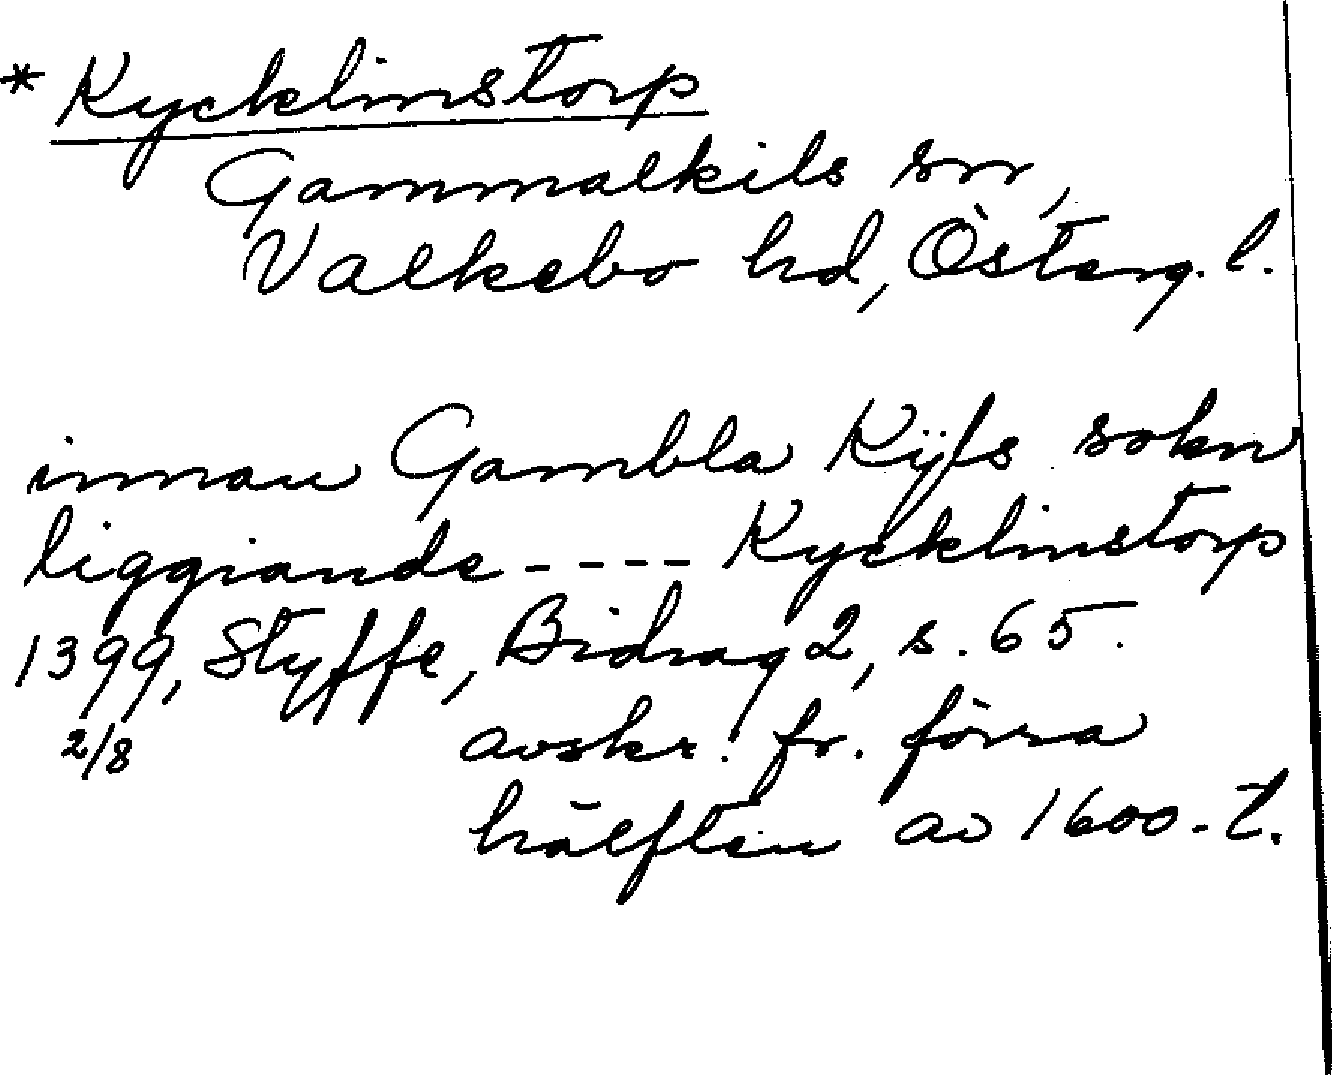 * Kycklinstorp
Gammalkils sn,
Valkebo hd, Österg. l.
innan Gambla Kijls sokn
liggiande - - - - Kycklinstorp
1399, Styffe, Bidrag 2, s. 65.
2/8 avskr. fr. förra
hälften av 1600-t.